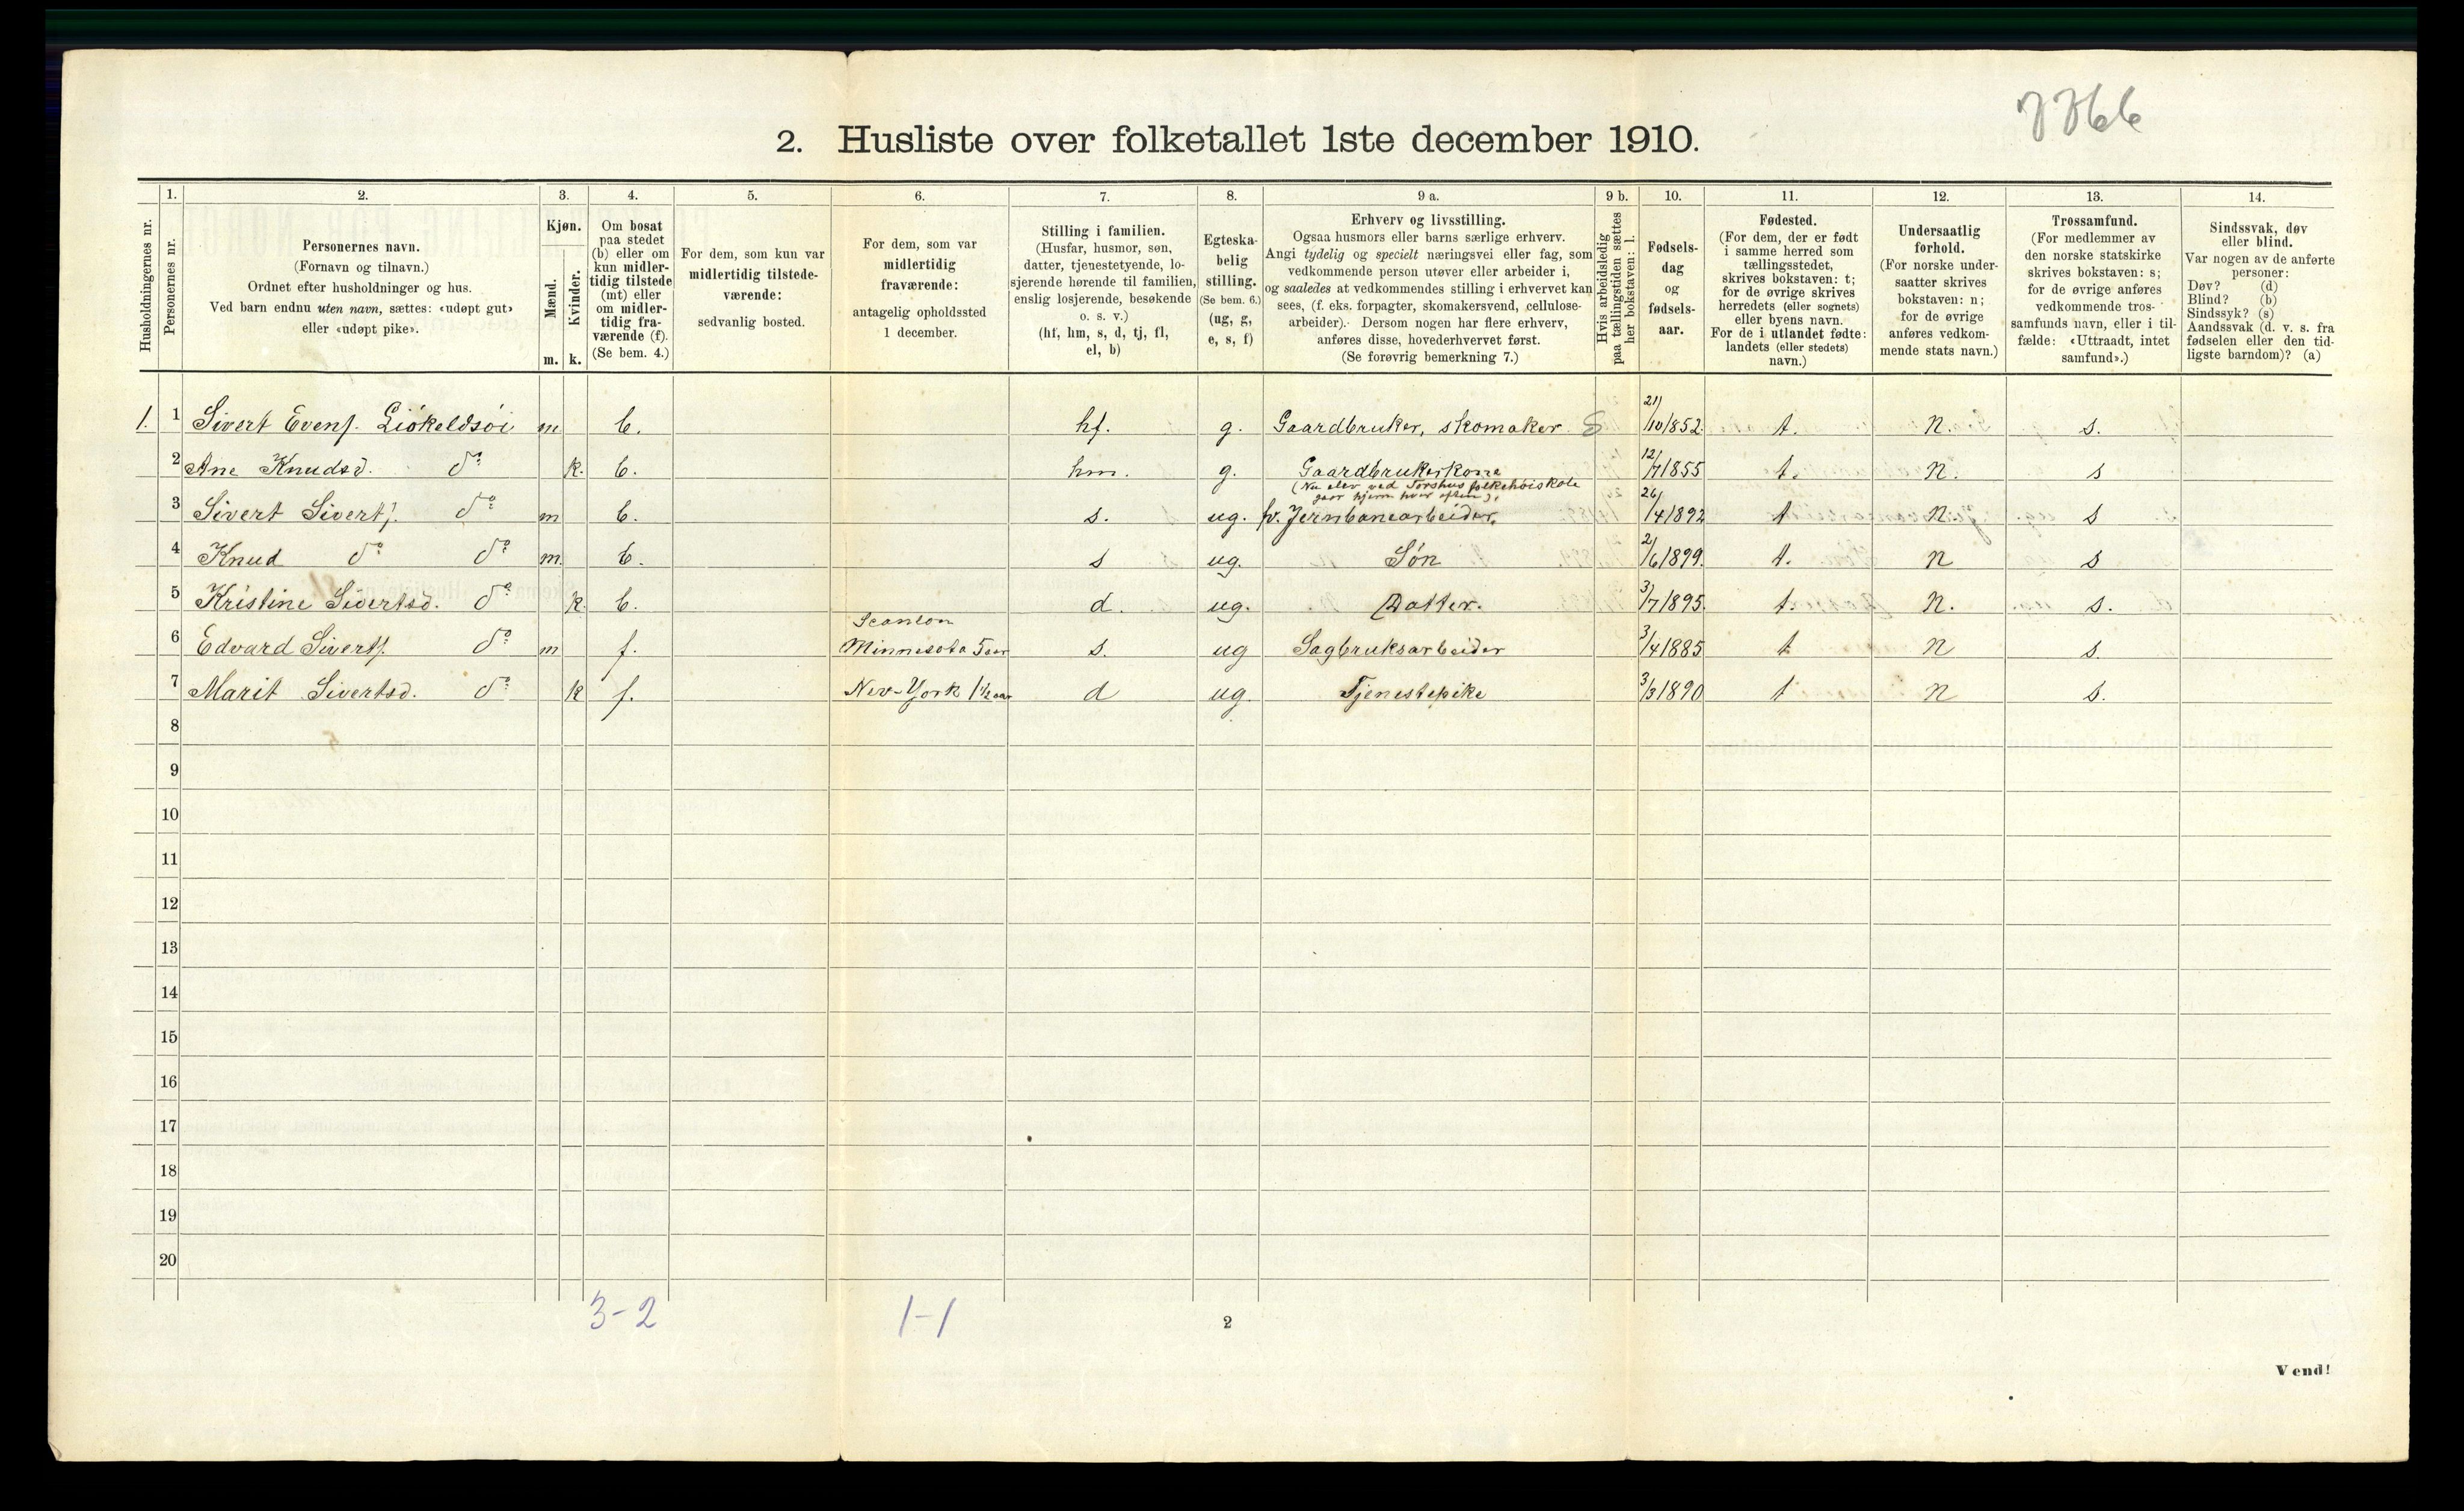 2. Husliste over folketallet 1ste december 1910.
Husholdningernes nr.
1.
Personernes nr.
2.
Personernes navn.
(Fornavn og tilnavn.)
Ordnet efter husholdninger og hus.
Ved barn endnu uten navn, sættes: «udøpt gut»
eller «udøpt pike».
3.
Kjøn.
Mænd.
Kvinder.
m. k.
4.
Om bosat
paa stedet
(b) eller om
kun midler-
tidig tilstede
(mt) eller
om midler-
tidig fra-
værende (f).
(Se bem. 4.)
5.
For dem, som kun var
midlertidig tilstede-
værende:
sedvanlig bosted.
6.
For dem, som var
midlertidig
fraværende:
antagelig opholdssted
1 december.
7.
Stilling i familien.
(Husfar, husmor, søn,
datter, tjenestetyende, lo-
sjerende hørende til familien,
enslig losjerende, besøkende
o. s. v.)
(hf, hm, s, d, tj, fl,
el, b)
8.
Egteska-
belig
stilling.
(Se bem. 6.)
(ug, g,
e, s, f)
9 a.
Erhverv og livsstilling.
Ogsaa husmors eller barns særlige erhverv.
Angi tydelig og specielt næringsvei eller fag, som
vedkommende person utøver eller arbeider i,
og saaledes at vedkommendes stilling i erhvervet kan
sees, (f. eks. forpagter, skomakersvend, cellulose-
arbeider). Dersom nogen har flere erhverv,
anføres disse, hovederhvervet først.
(Se forøvrig bemerkning 7.)
9 b.
Hvis arbeidsledig
paa tællingstiden sættes
her bokstaven: l.
10.
Fødsels-
dag
og
fødsels-
aar.
11.
Fødested.
(For dem, der er født
i samme herred som
tællingsstedet,
skrives bokstaven: t;
for de øvrige skrives
herredets (eller sognets)
eller byens navn.
For de i utlandet fødte:
landets (eller stedets)
navn.)
12.
Undersaatlig
forhold.
(For norske under-
saatter skrives
bokstaven: n;
for de øvrige
anføres vedkom-
mende stats navn.)
13.
Trossamfund.
(For medlemmer av
den norske statskirke
skrives bokstaven: s;
for de øvrige anføres
vedkommende tros-
samfunds navn, eller i til-
fælde: «Uttraadt, intet
samfund».)
14.
Sindssvak, døv
eller blind.
Var nogen av de anførte
personer:
Døv? (d)
Blind? (b)
Sindssyk? (s)
Aandssvak (d. v. s. fra
fødselen eller den tid-
ligste barndom)? (a)
1. 1 Sivert Evens. Liökeldsöi m b. hf. g. Gaardbruker, skomaker S 21/10 1852 t. n. s.
2 Ane Knudsd. do k. b. hm. g. Gaardbrukerkone 12/7 1855 t. n. s
(Nu elev ved Torshus folkehöiskole
gaar hjem hver aften).
3 Sivert Siverts. do m b. s. ug. fv. Jernbanearbeider. 26/4 1892 t n. s
4 Knud do do m. b. s ug. Søn 2/6 1899. t. n s
5 Kristine Sivertsd. do k. b. d. ug. Datter. 3/7 1895. t. n. s.
Scanlon
6 Edvard Siverts. do m f. Minnesota 5 aar s. ug Sagbruksarbeider 3/4 1885 t n s.
7 Marit Sivertsd. do k f. Nev-York 1 1/2 aar d ug. Tjenestepike 3/3 1890 t n s.
8
9
10
11
12
13
14
15
16
17
18
19
20
3-2 1-1
2
Vend!